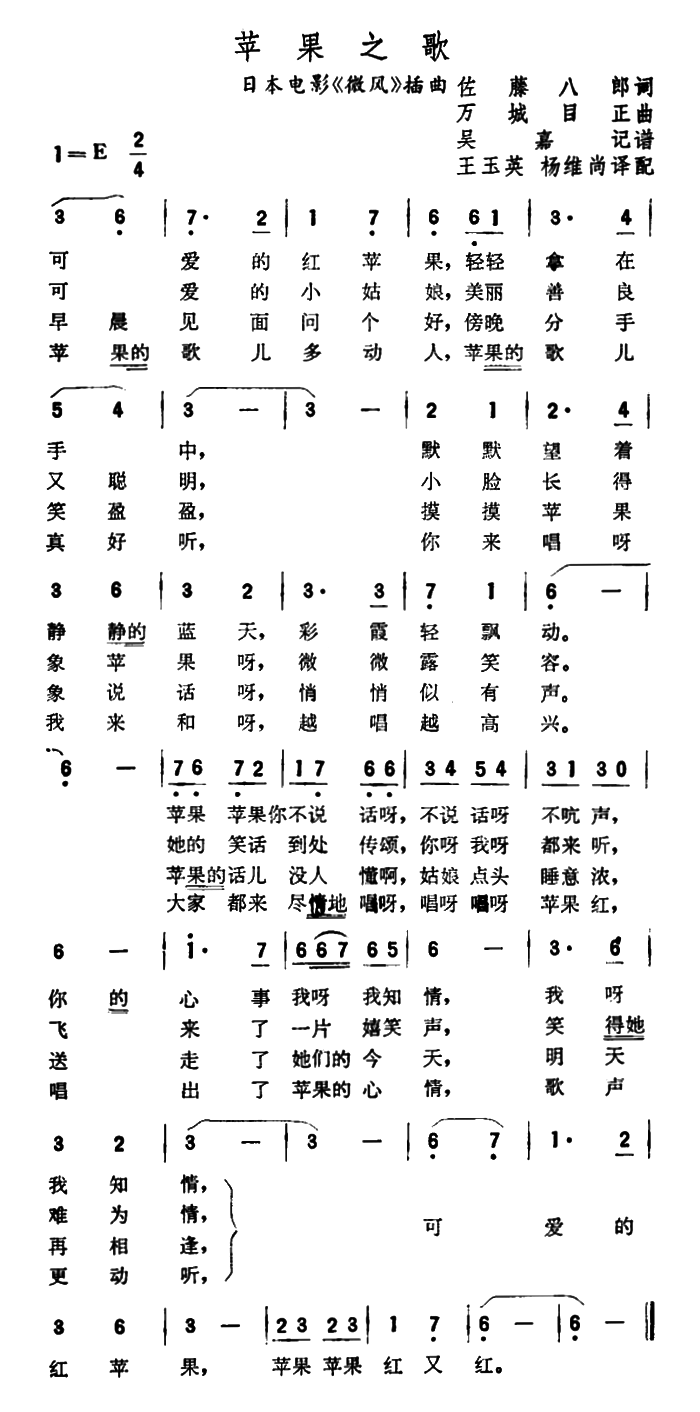 苹果之歌
日本电影《微风》插曲 佐藤八郎词
万城目正曲
吴嘉记谱
1=E 2/4 王玉英 杨维尚译配
3 6 | 7· 2 | 1 7 | 6 6 1 | 3· 4 |
可 爱的红苹果,轻轻拿在
可 爱的小姑娘,美丽善良
早晨见面问个好,傍晚分手
苹果的歌儿多动人,苹果的歌儿
5 4 | 3 — | 3 — | 2 1 | 2· 4 |
手 中, 默默望着
又聪明, 小脸长得
笑盈盈, 摸摸苹果
真好听, 你来唱呀
3 6 | 3 2 | 3· 3 | 7 1 | 6 — |
静静的蓝天,彩霞轻飘动。
象苹果呀,微微露笑容。
象说话呀,悄悄似有声。
我来和呀,越唱越高兴。
6 — | 7 6 7 2 | 1 7 6 6 | 3 4 5 4 | 3 1 3 0 |
苹果 苹果你不说 话呀,不说话呀 不吭声,
她的 笑话 到处 传颂,你呀我呀 都来听,
苹果的话儿 没人 懂啊,姑娘点头 睡意浓,
大家 都来 尽情地 唱呀,唱呀唱呀 苹果红,
6 — | 1· 7 | 6 6 7 6 5 | 6 — | 3· 6 |
你的心事我呀 我知情, 我呀
飞 来了一片 嬉笑声, 笑得她
送 走了她们的今 天, 明天
唱 出了苹果的心 情, 歌声
3 2 | 3 — | 3 — | 6 7 | 1· 2 |
我知情,
难为情,
可 爱的
再相逢,
更动听,
3 6 | 3 — | 2 3 2 3 | 1 7 | 6 — | 6 — ||
红苹果, 苹果 苹果 红又红。